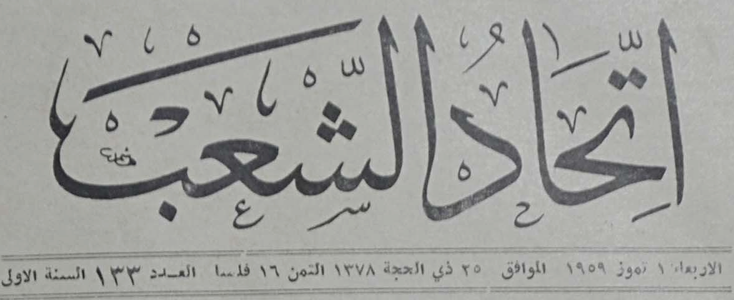 اتحاد الشعب
الاربعاء ١ تموز ١٩٥٩ الموافق ٢٥ ذي الحجة ١٣٧٨ الثمن ١٦ فلسا العدد ١٣٣ السنة الاولى